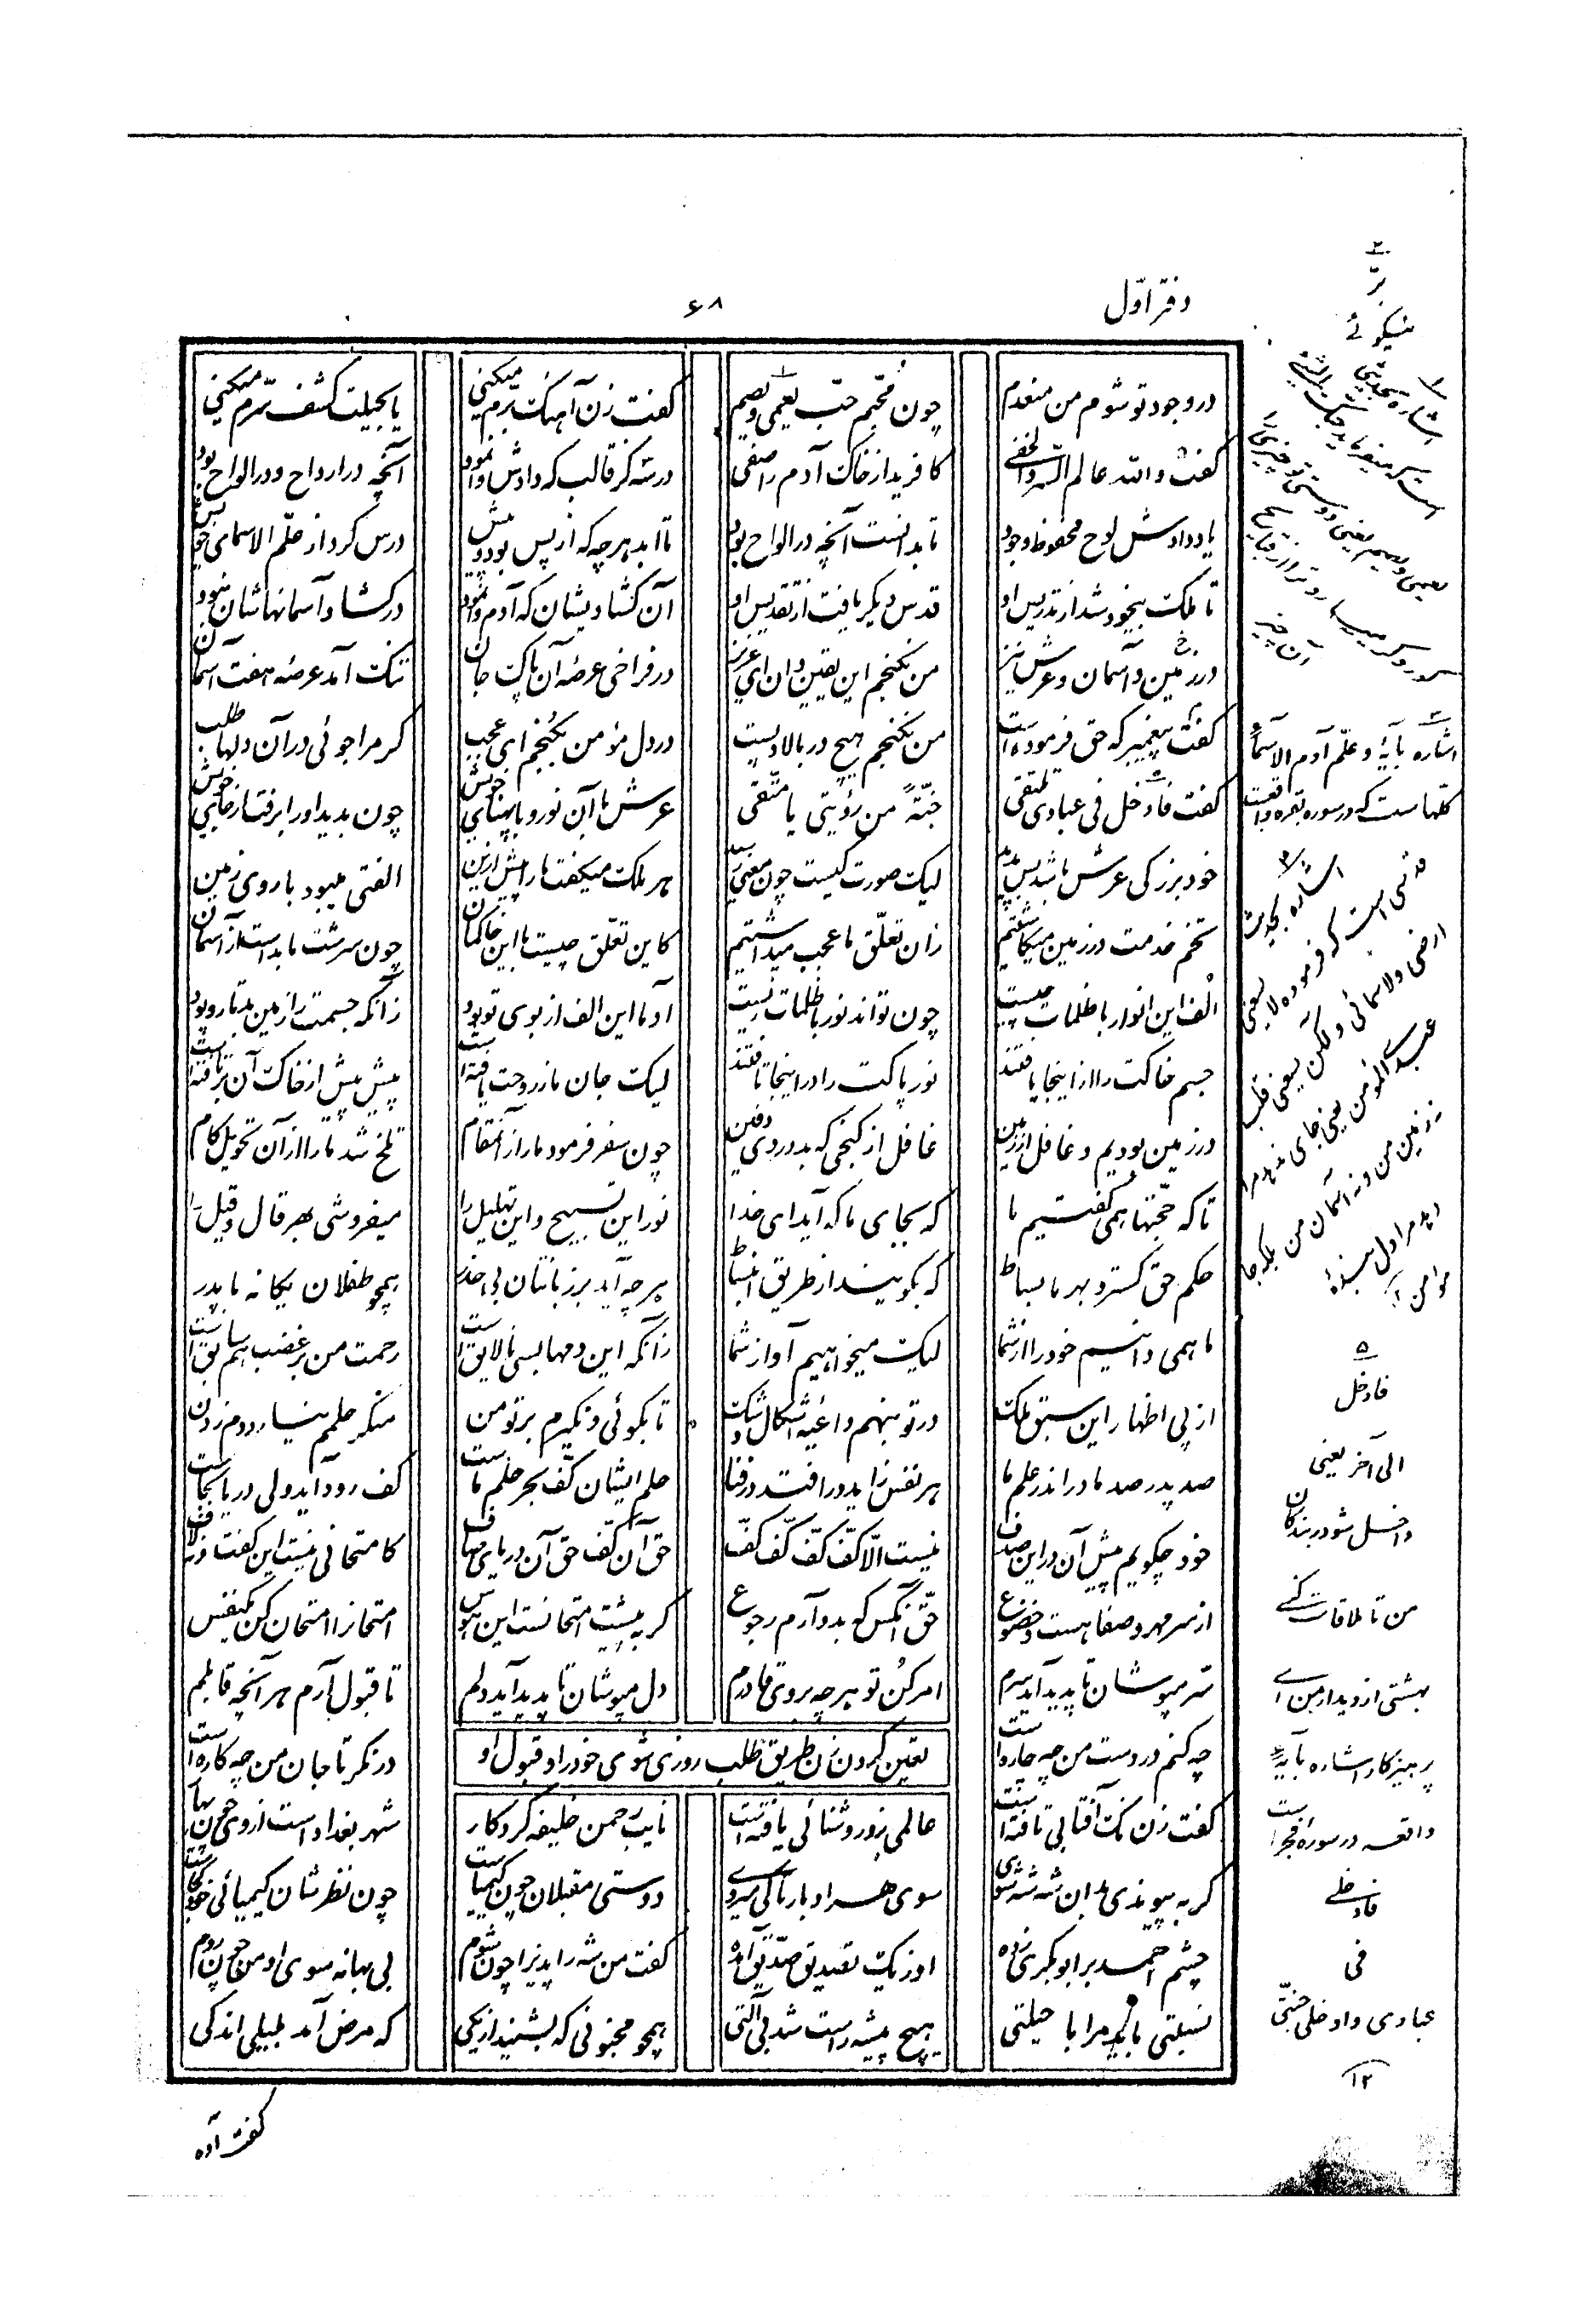 دفتر اوّل
۶۸
در وجود تو شوم من منعدم چون محبّم حبّ یعمی و یصم گفت زن آهنگ برّم میکنی یا بحیلت کشف سرّم میکنی
گفت و اللّه عالم السّر و الخفی کافرید از خاک آدم را صفی در سه گز قالب که دادش وانمود آنچه در ارواح و در الواح بود
یاد دادش لوح محفوظ وجود تا بدانست آنچه در الواح بود تا ابد هر چه که از پس بود و پیش درس کرد از علّم الاسمای خویش
تا ملک بیخود شد از تدریس او قدس دیگر یافت از تقدیس او آن گشادیشان که آدم وانمود در گشاد آسمانهاشان نبود
در فراخی عرصهٔ آن پاک جان تنگ آمد عرصهٔ هفت آسمان گفت پیغمبر که حق فرموده است من نگنجم هیچ در بالا و پست
در زمین و آسمان و عرش نیز من نگنجم این یقین دان ای عزیز در دل مؤمن بگنجم ای عجب گر مرا جوئی در آن دلها طلب
گفت فادخل فی عبادی تلتقی جنّةً من رؤیتی یا متّقی عرش با آن نور و با پهنای خویش چون بدید او را برفت از جای خویش
خود بزرگی عرش باشد بس پدید لیک صورت کیست چون معنی رسید هر ملک میگفت ما را پیش ازین الفتی میبود با روی زمین
تخم خدمت در زمین میکاشتیم زان تعلّق ما عجب میداشتیم کاین تعلّق چیست با این خاکمان چون سرشت ما بد است از آسمان
الف این انوار با ظلمات چیست چون تواند نور با ظلمات زیست آدما این الف از بوی تو بود زانکه جسمت را زمین بد تار و پود
جسم خاکت را از اینجا یافتند نور پاکت را در اینجا تافتند لیک جان ما ز روحت یافته است پیش پیش از خاک آن بر تافته است
در زمین بودیم و غافل از زمین غافل از گنجی که بد در وی دفین چون سفر فرمود ما را زآن مقام تلخ شد ما را از آن تحویل کام
تا که حجّتها همی گفتیم ما که بجای ما که آید ای خدا نور این تسبیح و این تهلیل را میفروشی بهر قال و قیل را
حکم حق گسترد بهر ما بساط که بگوئید از طریق انبساط هر چه آید بر زبانتان بی حذر همچو طفلان یگانه با پدر
ما همی دانسیم خود را از شما لیک میخواهیم آواز شما زانکه این دمها بسی نالایق است رحمت من بر غضب هم سابق است
از پی اظهار این سبق ای ملک در تو بنهم داعیهٔ اشکال و شک تا بگوئی و نگیرم بر تو من منکر حلمم نیارد دم زدن
صد پدر صد مادر اندر حلم ما هر نفس زاید در افتد در فنا حلم ایشان کفّ بحر حلم ماست کف رود آید ولی دریا بجاست
خود چگویم پیش آن در این صدف نیست الّا کفّ کفّ کفّ کفّ حق آن کفّ حق آن دریای صاف کامتحانی نیست این گفت و نه لاف
از سر مهر و صفا هست و خضوع حقّ آنکس که بدو آرم رجوع گر به پیشت امتحانست این هوس امتحانرا امتحان کن یکنفس
سر مپوشان تا پدید آید سرم امر کن تو هر چه بر وی قادرم دل مپوشان تا پدید آید دلم تا قبول آرم هر آنچه قابلم
چه کنم در دست من چه چاره است در نگر تا جان من چه کاره است
تعیین کردن زن طریق طلب روزی شوی خود را و قبول او
گفت زن نک آفتابی تافته است عالمی زو روشنائی یافته است نایب رحمن خلیفه کردگار شهر بغداد است از وی چون بهار
گر به پیوندی بدان شه شه شوی سوی هر ادبار تا کی میروی دوستی مقبلان چون کیمیاست چون نظرشان کیمیائی خود کجاست
چشم احمد بر ابوبکری زده او ز یک تصدیق صدّیق آمده گفت من شه را پذیرا چون شوم بی بهانه سوی او من چون روم
نسبتی باید مرا یا حیلتی هیچ پیشه راست شد بی آلتی همچو مجنونی که بشنید از یکی که مرض آمد بلیلی اندکی
گفت آوه
۲
برّ
نیکوئی
۱
۳
اشاره بآیهٔ و علّم آدم الاسماء
کلّها است که در سوره بقره واقعست
۴
اشاره بحدیث
قدسی است که فرموده لا یسعنی
ارضی و لا سمائی و لکن یسعنی قلب
عبدی المؤمن یعنی جای ندهد مرا
نه زمین من و نه آسمان من بلکه جا
دهد مرا دل بندهٔ
مؤمن ۱۲
۵
فادخل
الی آخر یعنی
داخل شو در بندگان
من تا ملاقات کنی
بهشتی از دیدار من ای
پرهیزکار اشاره بآیه
واقعه در سورهٔ فجر است
فادخلی
فی
عبادی و ادخلی جنّتی
۱۲